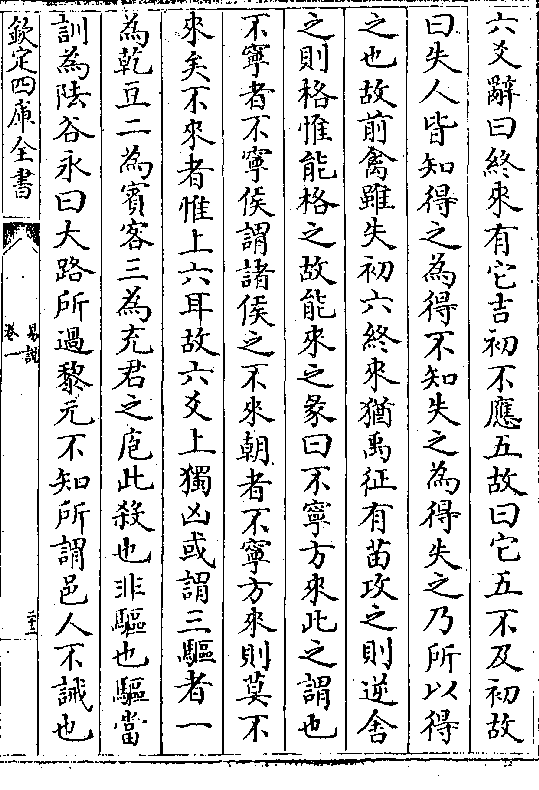 六爻辭曰終來有它吉初不應五故曰它五不及初故
曰失人皆知得之為得不知失之為得失之乃所以得
之也故前禽雖失初六終來猶禹征有苗攻之則逆舍
之則格惟能格之故能來之彖曰不寧方來此之謂也
不寧者不寧侯謂諸侯之不來朝者不寧方來則莫不
來矣不來者惟上六耳故六爻上獨凶或謂三驅者一
為乾豆二為賓客三為充君之庖此殺也非驅也驅當
訓為阹谷永曰大路所過黎元不知所謂邑人不誡也
欽定四庫全書
易說
卷一
二十三